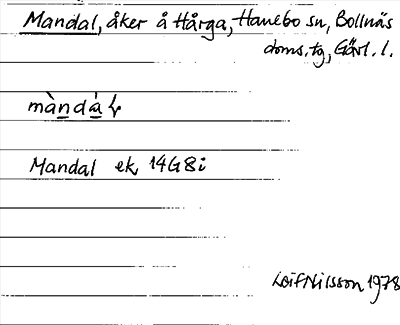 Mandal, åker å Hårga, Hanebo sn, Bollnäs
doms.tg, Gävl. l.
màndá
Mandal ek 14G8i
Leif Nilsson 1978